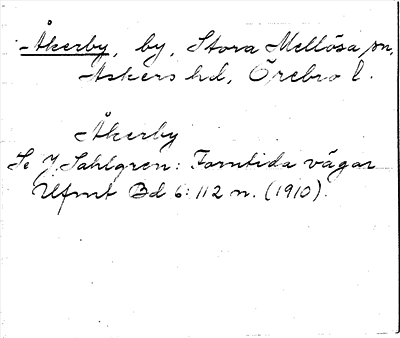 -Åkerby, by, Stora Mellösa sn,
Askers hd, Örebro l.
Åkerby
Se J. Sahlgren: Forntida vägar
Ufmt Bd 6:112 n. (1910).